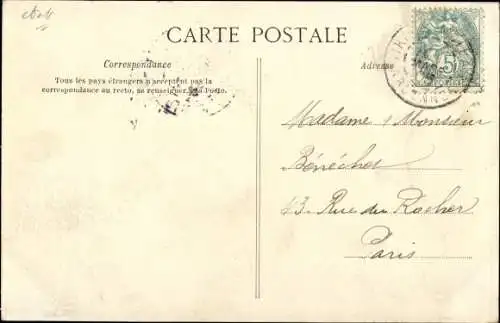 CARTE POSTALE
Correspondance
Tous les pays étrangers n'acceptent pas la
correspondance au recto, se renseigner à la Poste.
Adresse
5
Madame & Monsieur
13 Rue du Rocher
Paris